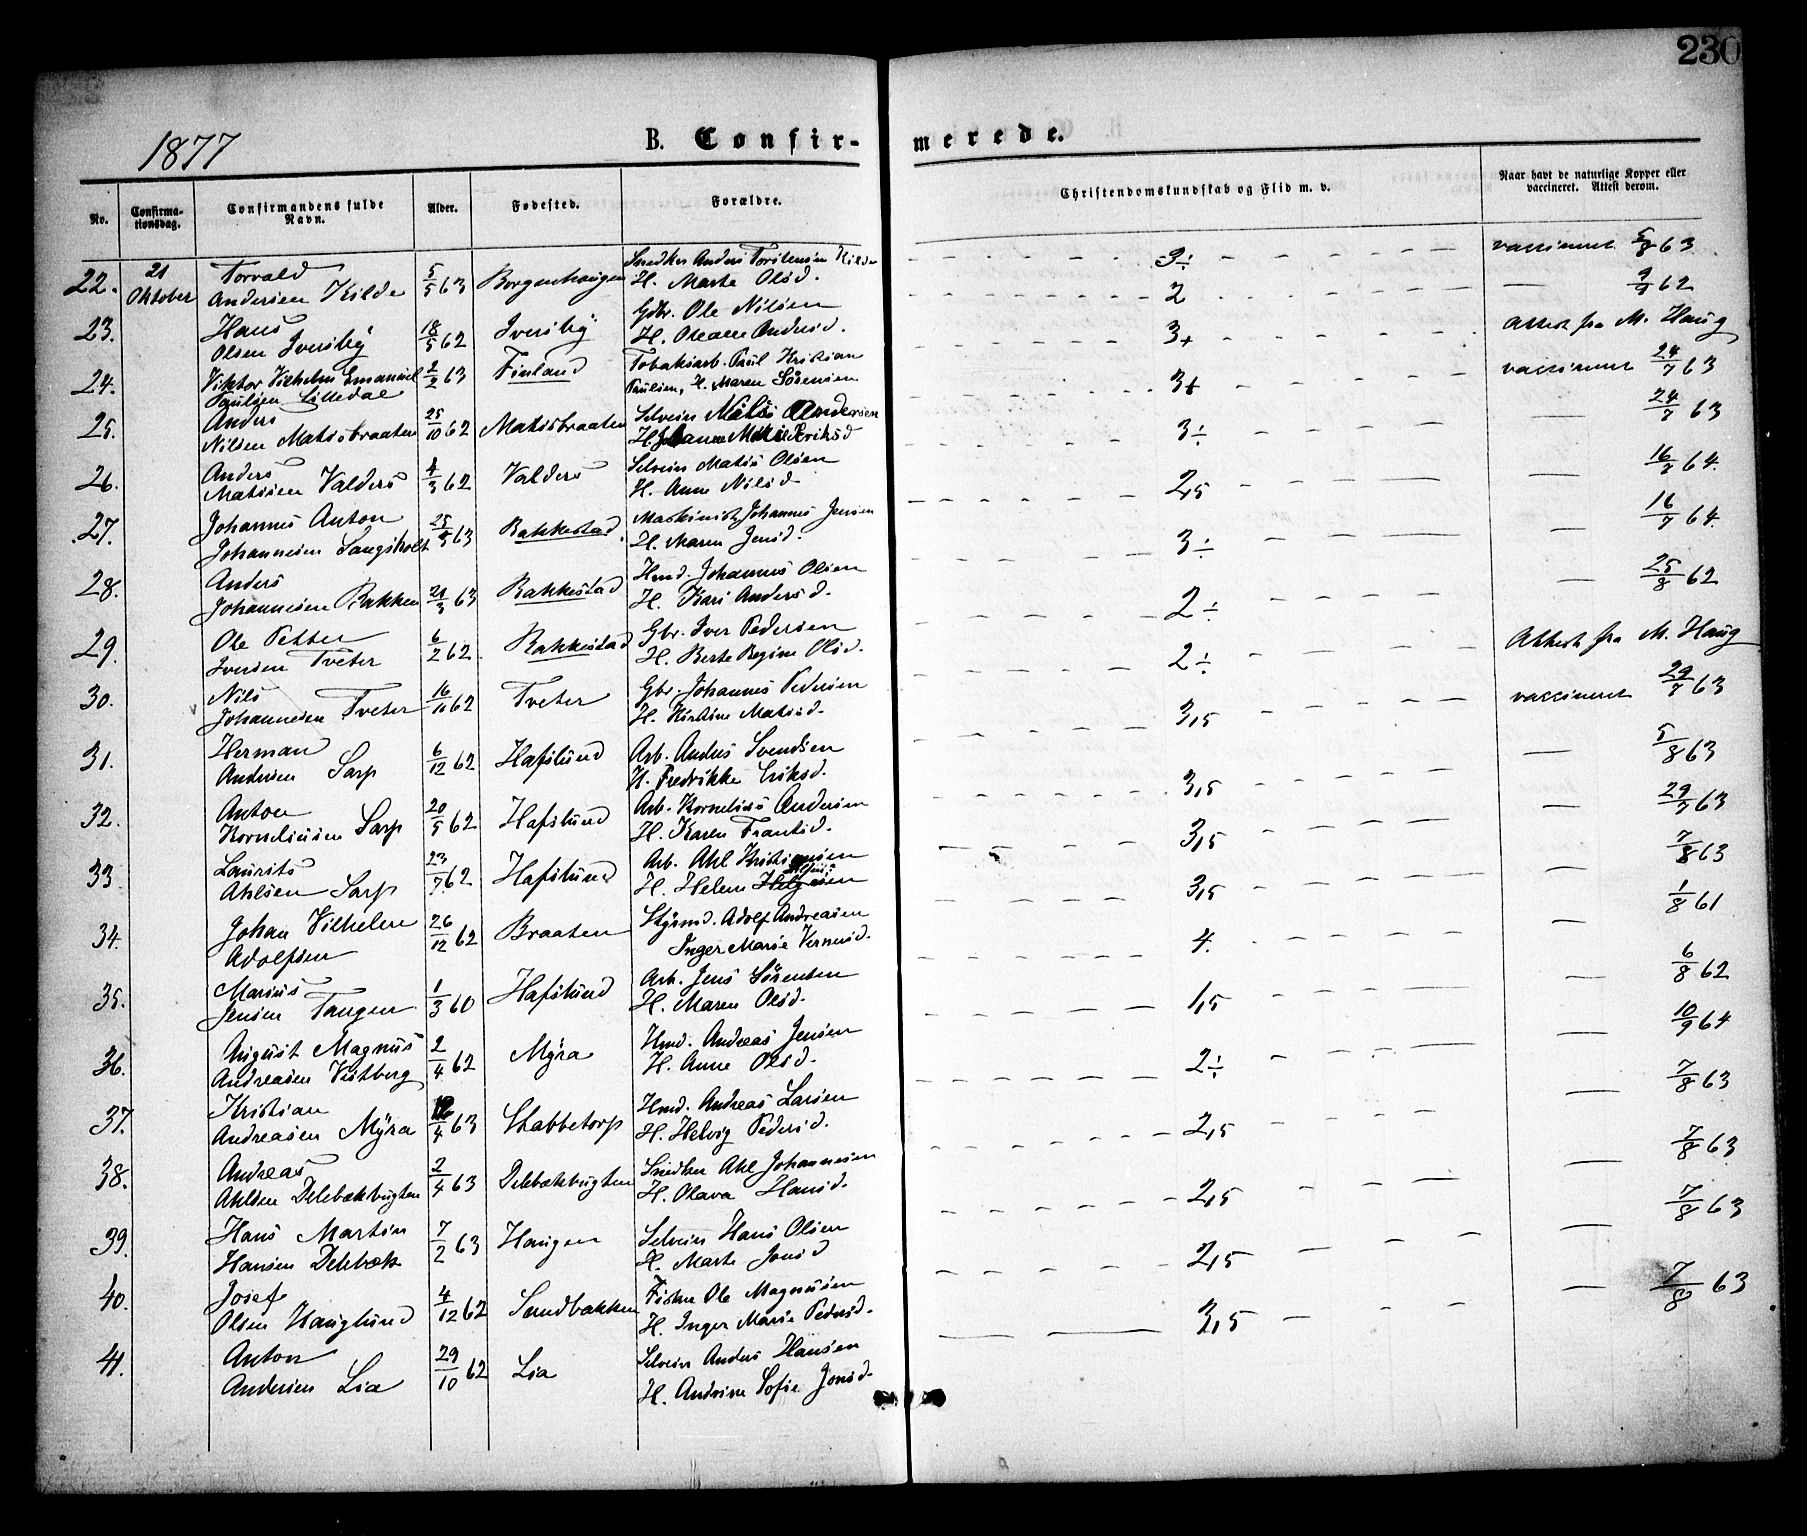 230
1877
B. Confir-
merede.
No.
Confirma-
tionsdag.
Confirmandens fulde
Navn.
Alder.
Fødested.
Forældre.
Christendomskundskab og Flid m. v.
Naar havt de naturlige Kopper eller
vaccineret. Attest derom.
22. 21 Oktober
Torvald
Andersen Kilde
5/5 63 Borgenhaugen
Snedker Anders Torstensen Kilde
H. Marte Olsd.
3÷ vaccineret 5/8 63
23.
Hans
Olsen Iversby
18/5 62 Iversby
Gbr. Ole Nilsen
H. Oleane Andersd.
2 — 9/9 62
24.
Viktor Vilhelm Emanuel
Paulsen Lilledal
2/2 63 Finland
Tobaksarb. Paul Kristian
Paulsen, H. Maren Sørensen
3+ Attest fra M. Haug
25.
Anders
Nilsen Matisbraaten
25/10 62 Matisbraaten
Selveier Nils Andersen
H. Eriksd
3+ vaccineret 24/7 63
26.
Anders
Matisen Valders
4/3 62 Valders
Selveier Matis Olsen
H. Anne Nilsd
3÷ — 24/7 63
27.
Johannes Anton
Johannesen Sangsholt
25/5 63 Rakkestad
Maskinist Johannes Jensen
H. Maren Jensd.
2,5 — 16/7 64.
28.
Anders
Johannesen Bakken
21/3 63 Rakkestad
Hmd. Johannes Olsen
H. Kari Andersd.
3÷ — 16/7 64.
29.
Ole Petter
Iversen Tveter
6/2 62. Rakkestad
Gbr. Iver Pedersen
H. Berte Regine Olsd.
2÷ — 25/8 62
30.
Nils
Johannesen Tveter
16/11 62 Tveter
Gbr. Johannes Pedersen
H. Kirstine Matisd.
2÷ Attest fra M. Haug
31.
Herman
Andersen Sarp
6/12 62 Hafslund
Arb. Anders Svendsen
H. Fredrikke Eriksd.
3,5 vaccineret 29/7 63
32.
Anton
Korneliusen Sarp
20/5 62 Hafslund
Arb. Kornelius Andersen
H. Karen Frantsd.
3,5 — 5/8 63
33.
Laurits
Ahlsen Sarp
23/7 62 Hafslund
Arb. Ahl Kristiansen
H. Helene Helgesen
3,5 — 29/7 63
34.
Johan Vilhelm
Adolfsen
26/12 62 Braaten
Styrmd. Adolf Andreasen
Inger Marie Vernersd.
3,5 — 7/8 63
35.
Marius
Jensen Tangen
1/3 60 Hafslund
Arb. Jens Sørensen
H. Maren Olsd.
4. — 1/8 61
36.
August Magnus
Andreasen Vestberg
2/4 62 Myra
Hmd. Andreas Jensen
H. Anne Olsd.
1,5 — 6/8 62
37.
Kristian
Andreasen Myra
/4 63 Stabbetorp
Hmd. Andreas Larsen
H. Helvig Pedersd.
2÷ — 10/9 64
38.
Andreas
Ahlsen Delebækbugten
2/4 63 Delebækbugten
Snedker Ahl Johannesen
H. Olava Hansd.
2,5 — 7/8 63
39.
Hans Martin
Hansen Delebæk
7/2 63 Haugen
Selveier Hans Olsen
H. Marte Jonsd
2,5 — 7/8 63
40.
Josef
Olsen Hauglund
4/12 62 Sandbakken
Fisker Ole Magnussen
H. Inger Marie Pedersd.
2,5 — 7/8 63
41.
Anton
Andersen Lia
29/10 62 Lia
Selveier Anders Hansen
H. Andrine Sofie Jonsd.
3,5 — 7/8 63